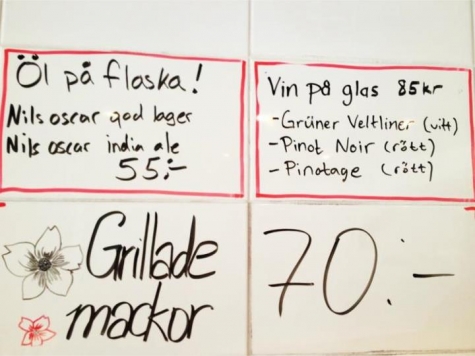 Öl på flaska!
Nils oscar god lager
Nils oscar india ale
55:-
Vin på glas 85kr
-Grüner Veltliner (vitt)
-Pinot Noir (rött)
-Pinotage (rött)
Grillade
mackor
70:-